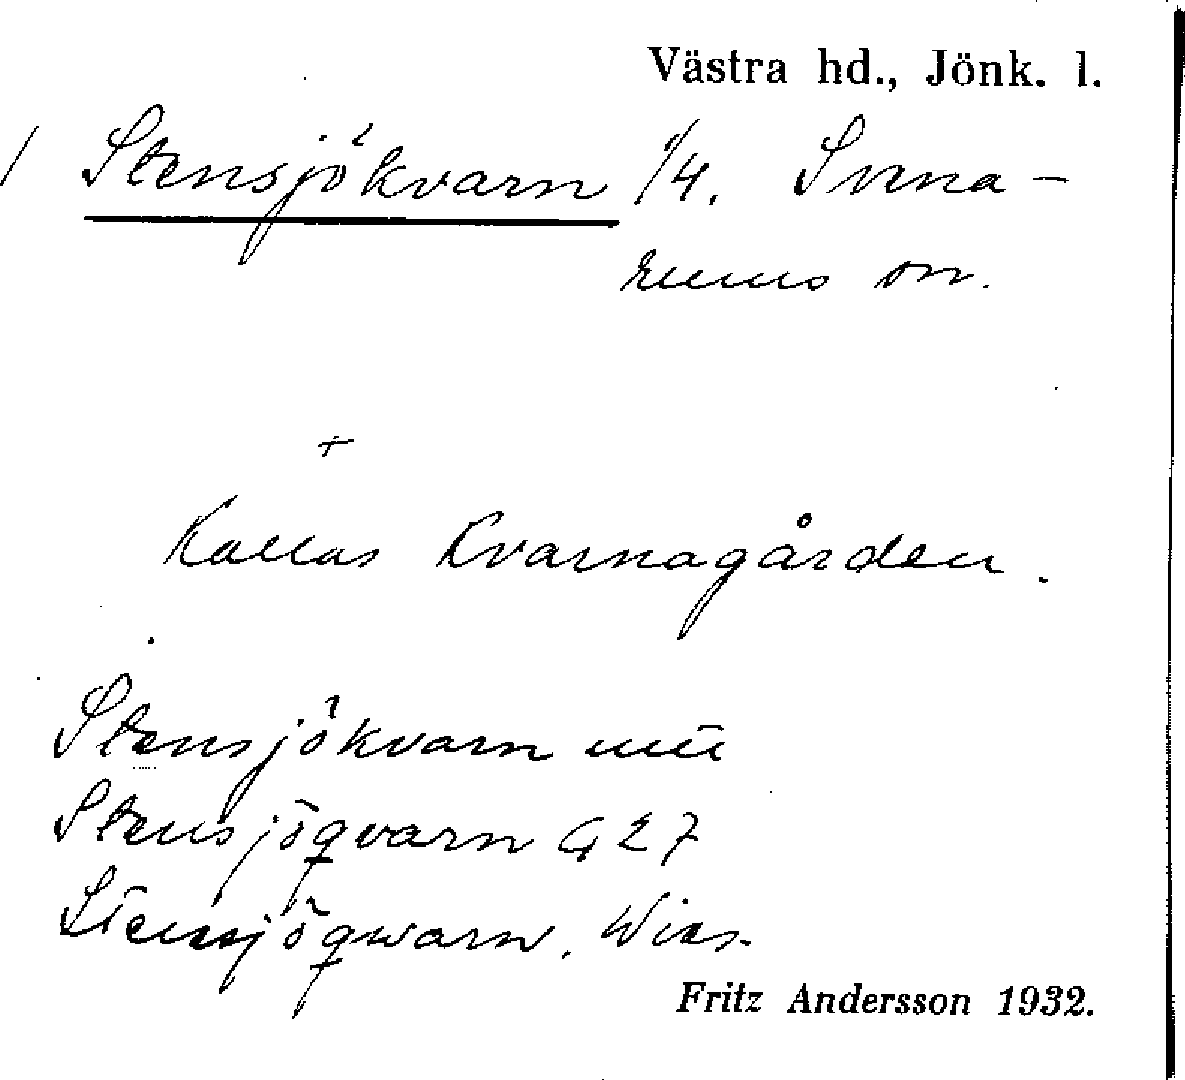 Västra hd., Jönk. l.
/ Stensjökvarn 1/4. Svena-
rums sn.
+
Kallas Kvarnagården.
Stensjökvarn
Stensjöqvarn G 27
Stensjöqwarn. Wies.
Fritz Andersson 1932.